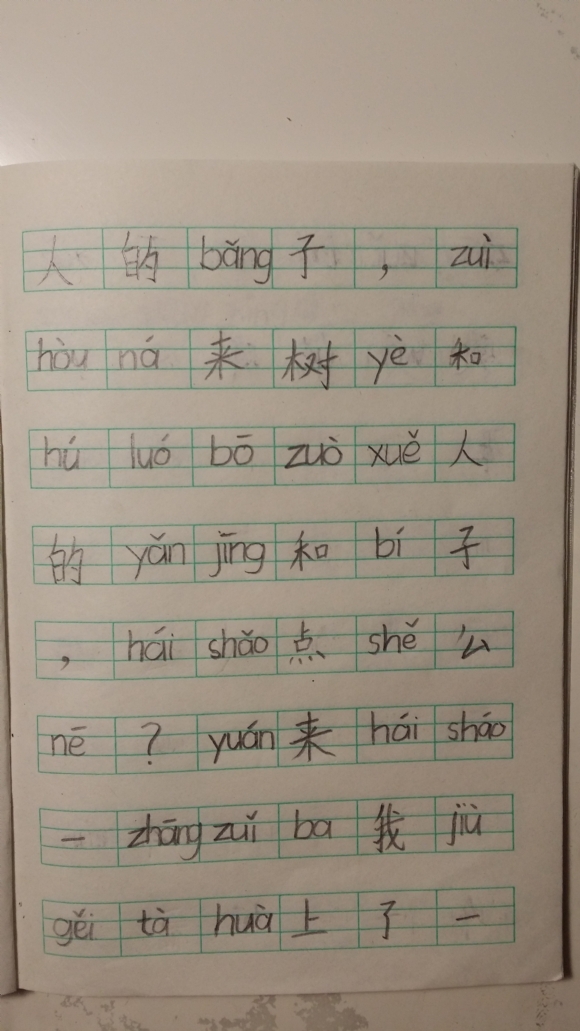 人 的 bǎng 子 , zuì
hòu ná 来 树 yè 和
hú luó bō zuò xuě 人
的 yǎn jīng 和 bí 子
, hái shǎo 点 shě 么
nē ? yuán 来 hái sháo
一 zhāng zuǐ ba 我 jiù
gěi tà huà 上 了 一